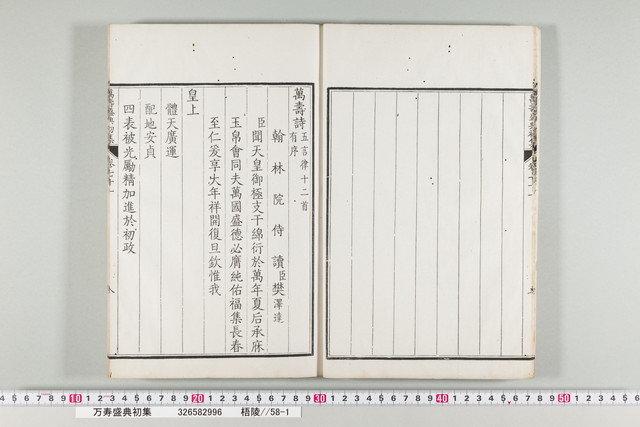 萬壽詩五言律十二首
有序
翰林院侍讀臣樊澤達
臣聞天皇御極支干綿衍於萬年夏后承庥
玉帛會同夫萬國盛德必膺純佑福集長春
至仁爰享大年祥開復旦欽惟我
皇上
體天廣運
配地安貞
四表被光勵精加進於初政
10 20 30 40 50
万寿盛典初集 326582996 梧陵//58-1